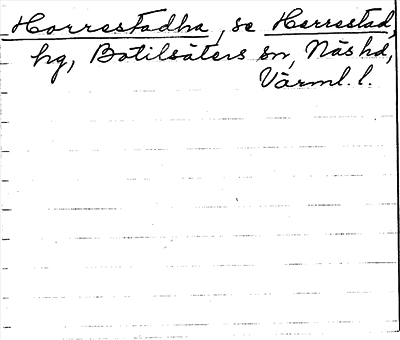 Horrestadha, se Herrestad,
hg, Botilsäters sn, Näs hd,
Värml. l.